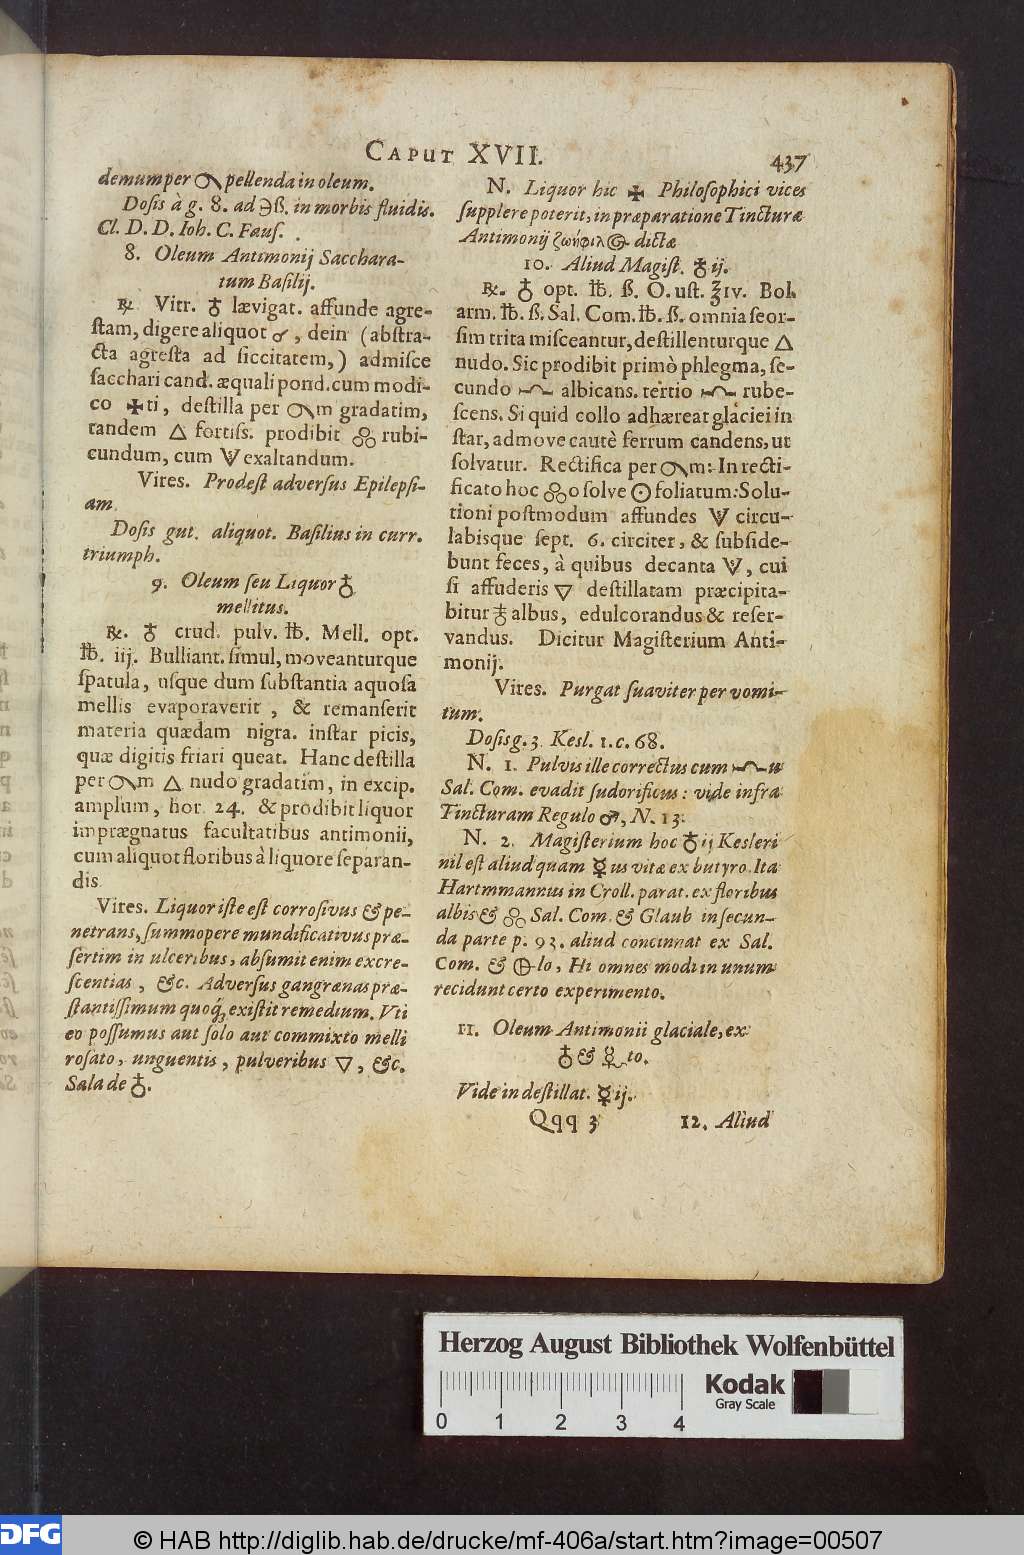 CAPUT XVII. 437
demum per pellenda in oleum.
Dosis à g. 8. ad ℈ß. in morbis fluidis.
Cl. D. D. Ioh. C. Faus.
8. Oleum Antimonij Sacchara-
tum Basilij.
℞ Vitr. ♁ lævigat. affunde agre-
stam, digere aliquot , dein (abstra-
cta agresta ad siccitatem,) admisce
sacchari cand. æquali pond. cum modi-
co ✠ti, destilla per m gradatim,
tandem △ fortiss. prodibit rubi-
cundum, cum exaltandum.
Vires. Prodest adversus Epilepsi-
am
Dosis gut. aliquot. Basilius in curr.
triumph.
9. Oleum seu Liquor ♁
mellitus.
℞. ♁ crud. pulv. ℔. Mell. opt.
℔. iij. Bulliant. simul, moveanturque
spatula, usque dum substantia aquosa
mellis evaporaverit, & remanserit
materia quædam nigra. instar picis,
quæ digitis friari queat. Hanc destilla
per m △ nudo gradatim, in excip.
amplum, hor. 24. & prodibit liquor
imprægnatus facultatibus antimonii,
cum aliquot floribus à liquore separan-
dis
Vires. Liquor iste est corrosivus & pe-
netrans, summopere mundificativus præ-
sertim in ulceribus, absumit enim excre-
scentias, &c. Adversus gangrænas præ-
stantissimum quoq; existit remedium. Vti
eo possumus aut solo aut commixto melli
rosato, unguentis, pulveribus ▽, &c.
Sala de ♁.
N. Liquor hic ✠ Philosophici vices
supplere poterit, in præparatione Tincturæ
Antimonij dictæ
10. Aliud Magist. ♁ij.
℞. ♁ opt. ℔. ß. O. ust. ℥iv. Bol.
arm. ℔. ß. Sal. Com. ℔. ß. omnia seor-
sim trita misceantur, destillenturque △
nudo. Sic prodibit primò phlegma, se-
cundo albicans. tertio rube-
scens. Si quid collo adhæreat glaciei in
star, admove cautè ferrum candens, ut
solvatur. Rectifica per m: In recti-
ficato hoc o solve ☉ foliatum: Solu-
tioni postmodum affundes circu-
labisque sept. 6. circiter, & subside-
bunt feces, à quibus decanta , cui
si affuderis ▽ destillatam præcipita-
bitur ♁ albus, edulcorandus & reser-
vandus. Dicitur Magisterium Anti-
monij.
Vires. Purgat suaviter per vomi-
tum.
Dosis g. 3. Kesl. 1. c. 68.
N. 1. Pulvis ille correctus cum u
Sal. Com. evadit sudorificus: vide infra
Tincturam Regulo ♂, N. 13.
N. 2. Magisterium hoc ♁ij Kesleri
nil est aliud quam ☿ius vitæ ex butyro. Ita
Hartmmannus in Croll. parat. ex floribus
albis & Sal. Com. & Glaub in secun-
da parte p. 93. aliud concinnat ex Sal.
Com. & lo, Hi omnes modi in unum
recidunt certo experimento.
11. Oleum Antimonii glaciale, ex
♁ & to.
Vide in destillat. ☿ij.
Qqq 3 12. Aliud
Herzog August Bibliothek Wolfenbüttel
Kodak
Gray Scale
0 1 2 3 4
DFG © HAB http://diglib.hab.de/drucke/mf-406a/start.htm?image=00507